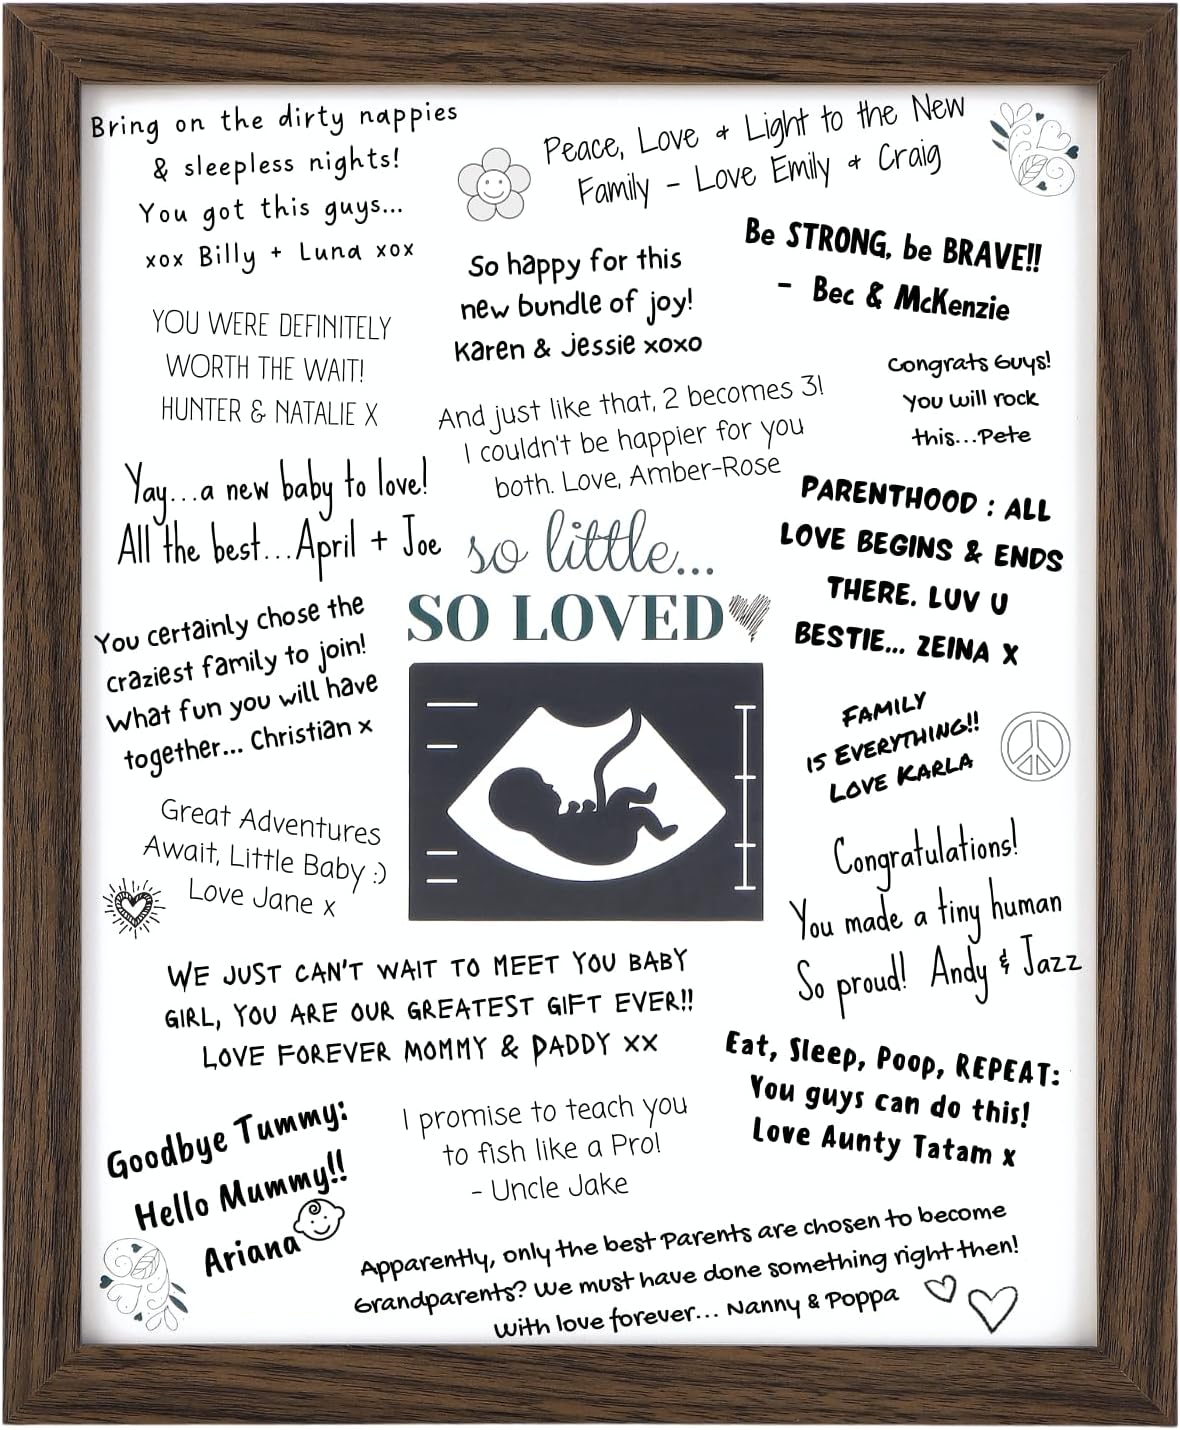 Bring on the dirty nappies
& sleepless nights!
You got this guys...
xox Billy + Luna xox
Peace, Love + Light to the New
Family - Love Emily + Craig
Be STRONG, be BRAVE!!
- Bec & McKenzie
So happy for this
new bundle of joy!
Karen & Jessie xoxo
YOU WERE DEFINITELY
WORTH THE WAIT!
HUNTER & NATALIE X
Congrats Guys!
You will rock
this...Pete
And just like that, 2 becomes 3!
I couldn't be happier for you
both. Love, Amber-Rose
Yay...a new baby to love!
All the best...April + Joe
PARENTHOOD : ALL
LOVE BEGINS & ENDS
THERE. LUV U
BESTIE... ZEINA X
so little...
SO LOVED
You certainly chose the
craziest family to join!
What fun you will have
together... Christian x
FAMILY
IS EVERYTHING!!
LOVE KARLA
Great Adventures
Await, Little Baby :)
Love Jane x
Congratulations!
You made a tiny human
So proud! Andy & Jazz
WE JUST CAN'T WAIT TO MEET YOU BABY
GIRL, YOU ARE OUR GREATEST GIFT EVER!!
LOVE FOREVER MOMMY & DADDY XX
Eat, Sleep, Poop, REPEAT:
You guys can do this!
Love Aunty Tatam x
Goodbye Tummy:
Hello Mummy!!
Ariana
I promise to teach you
to fish like a Pro!
- Uncle Jake
Apparently, only the best Parents are chosen to become
Grandparents? We must have done something right then!
With love forever... Nanny & Poppa